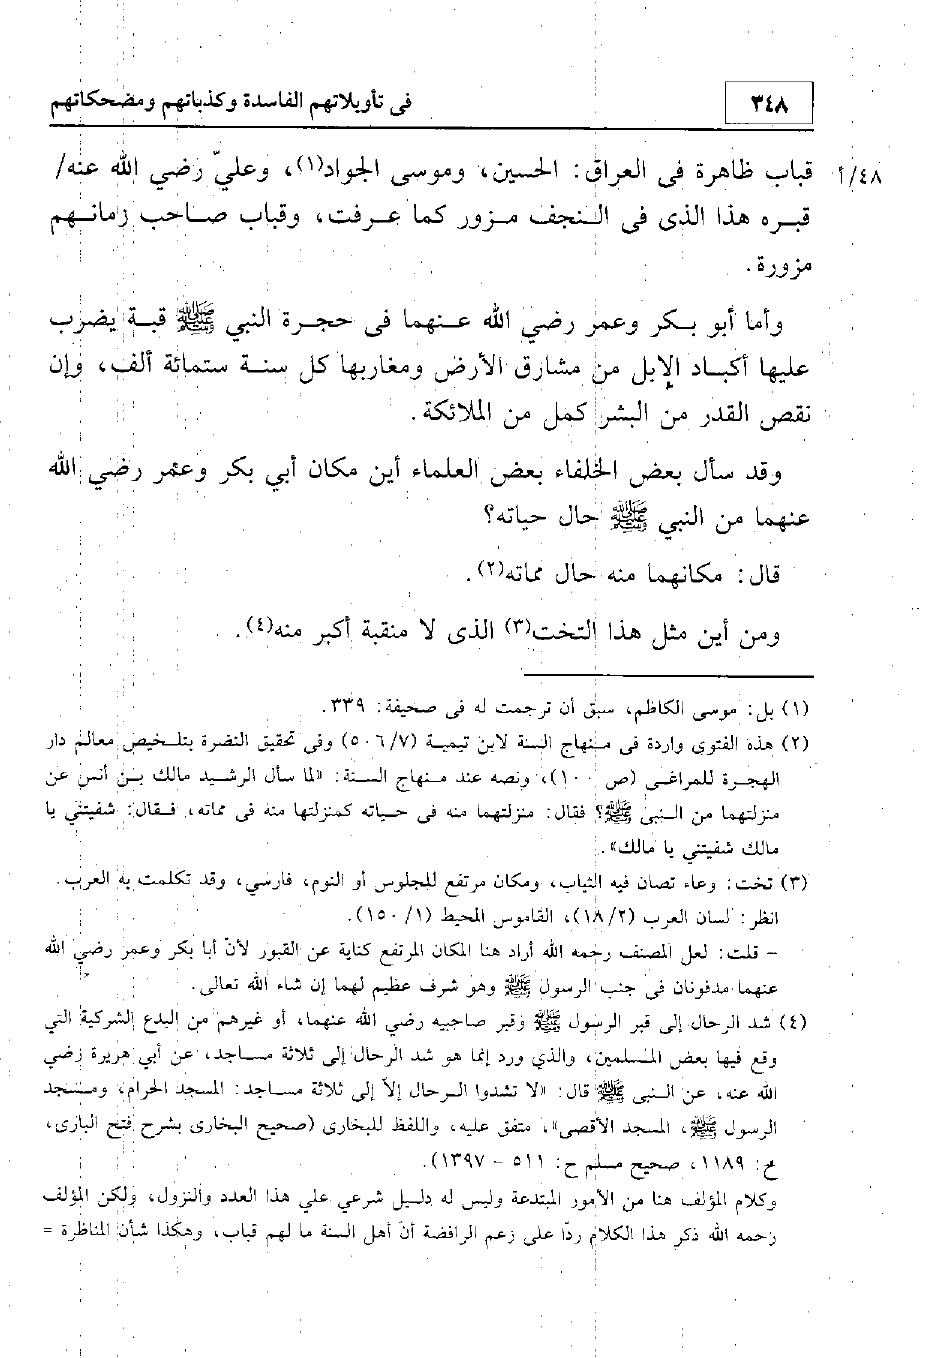 ٣٤٨
فى تأويلاتهم الفاسدة وكذباتهم ومضحكاتهم
٤٨/أ قباب ظاهرة فى العراق: الحسين، وموسى الجواد(١)، وعليّ رضي الله عنه/
قبره هذا الذى فى النجف مزور كما عرفت، وقباب صاحب زمانهم
مزورة.
وأما أبو بكر وعمر رضي الله عنهما فى حجرة النبي ﷺ قبة يضرب
عليها أكباد الإبل من مشارق الأرض ومغاربها كل سنة ستمائة ألف، وإن
نقص القدر من البشر كمل من الملائكة.
وقد سأل بعض الخلفاء بعض العلماء أين مكان أبي بكر وعمر رضي الله
عنهما من النبي ﷺ حال حياته؟
قال: مكانهما منه حال مماته(٢).
ومن أين مثل هذا التخت(٣) الذى لا منقبة أكبر منه(٤).
(١) بل: موسى الكاظم، سبق أن ترجمت له فى صحيفة: ٣٣٩.
(٢) هذه الفتوى واردة فى منهاج السنة لابن تيمية (٥٠٦/٧) وفى تحقيق النضرة بتلخيص معالم دار
الهجرة للمراغى (ص ١٠٠)، ونصه عند منهاج السنة: «لما سأل الرشيد مالك بن أنس عن
منزلتهما من النبى ﷺ؟ فقال: منزلتهما منه فى حياته كمنزلتها منه فى مماته، فقال: شفيتني يا
مالك شفيتني يا مالك».
(٣) تخت: وعاء تصان فيه الثياب، ومكان مرتفع للجلوس أو النوم، فارسي، وقد تكلمت به العرب.
انظر: لسان العرب (١٨/٢)، القاموس المحيط (١٥٠/١).
- قلت: لعل المصنف رحمه الله أراد هنا المكان المرتفع كناية عن القبور لأنّ أبا بكر وعمر رضي الله
عنهما مدفونان فى جنب الرسول ﷺ وهو شرف عظيم لهما إن شاء الله تعالى.
(٤) شد الرحال إلى قبر الرسول ﷺ وقبر صاحبيه رضي الله عنهما، أو غيرهم من البدع الشركية التي
وقع فيها بعض المسلمين، والذي ورد إنما هو شد الرحال إلى ثلاثة مساجد، عن أبي هريرة رضي
الله عنه، عن النبى ﷺ قال: «لا تشدوا الرحال إلاّ إلى ثلاثة مساجد: المسجد الحرام، ومسجد
الرسول ﷺ، المسجد الأقصى»، متفق عليه، واللفظ للبخارى (صحيح البخارى بشرح فتح البارى،
ح: ١١٨٩، صحيح مسلم ح: ٥١١ - ١٣٩٧).
وكلام المؤلف هنا من الأمور المبتدعة وليس له دليل شرعي علي هذا العدد والنزول، ولكن المؤلف
رحمه الله ذكر هذا الكلام ردّا على زعم الرافضة أن أهل السنة ما لهم قباب، وهكذا شأن المناظرة =